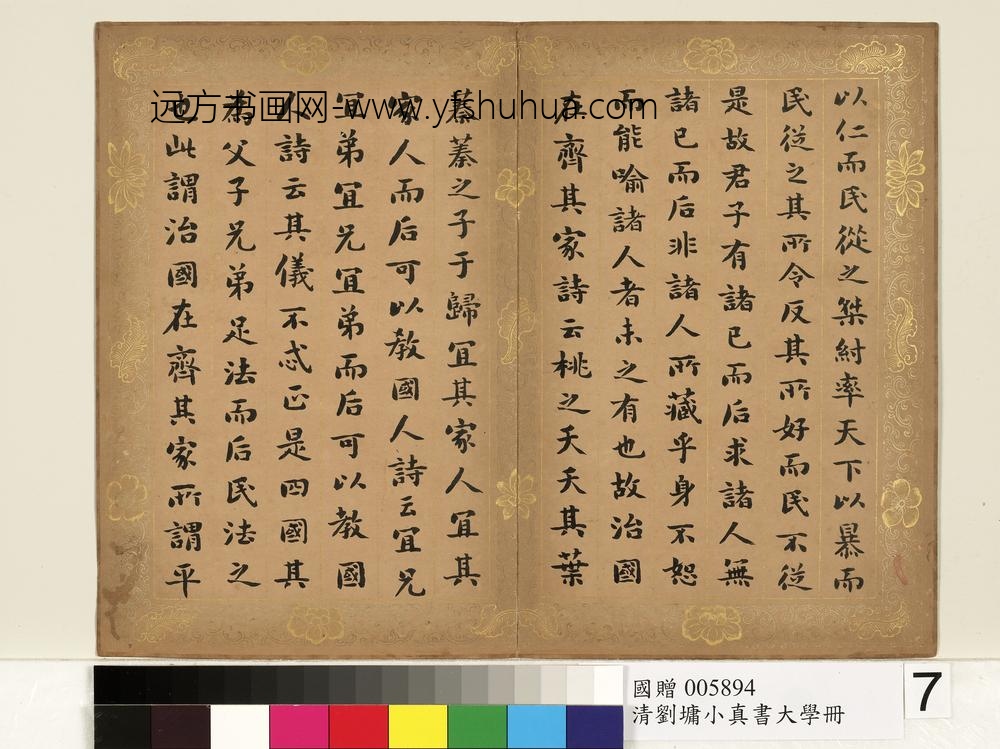 以仁而民從之桀紂率天下以暴而
民從之其所令反其所好而民不從
是故君子有諸己而后求諸人無
諸己而后非諸人所藏乎身不恕
而能喻諸人者未之有也故治國
在齊其家詩云桃之夭夭其葉
蓁蓁之子于歸宜其家人宜其
家人而后可以教國人詩云宜兄
宜弟宜兄宜弟而后可以教國
人詩云其儀不忒正是四國其
為父子兄弟足法而后民法之
也此謂治國在齊其家所謂平
远方书画网-www.yfshuhua.com
國贈 005894
清劉墉小真書大學冊
7